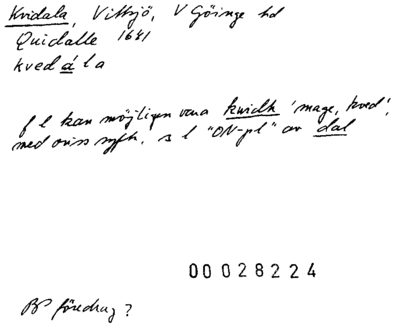 Kvidala, Vittsjö, V Göinge hd
Quidalle 1641
kvedála
f l kan möjligen vara kwidh 'mage, kved',
med oviss syft. s l "ON-pl" av dal
00028224
BP föredrag?